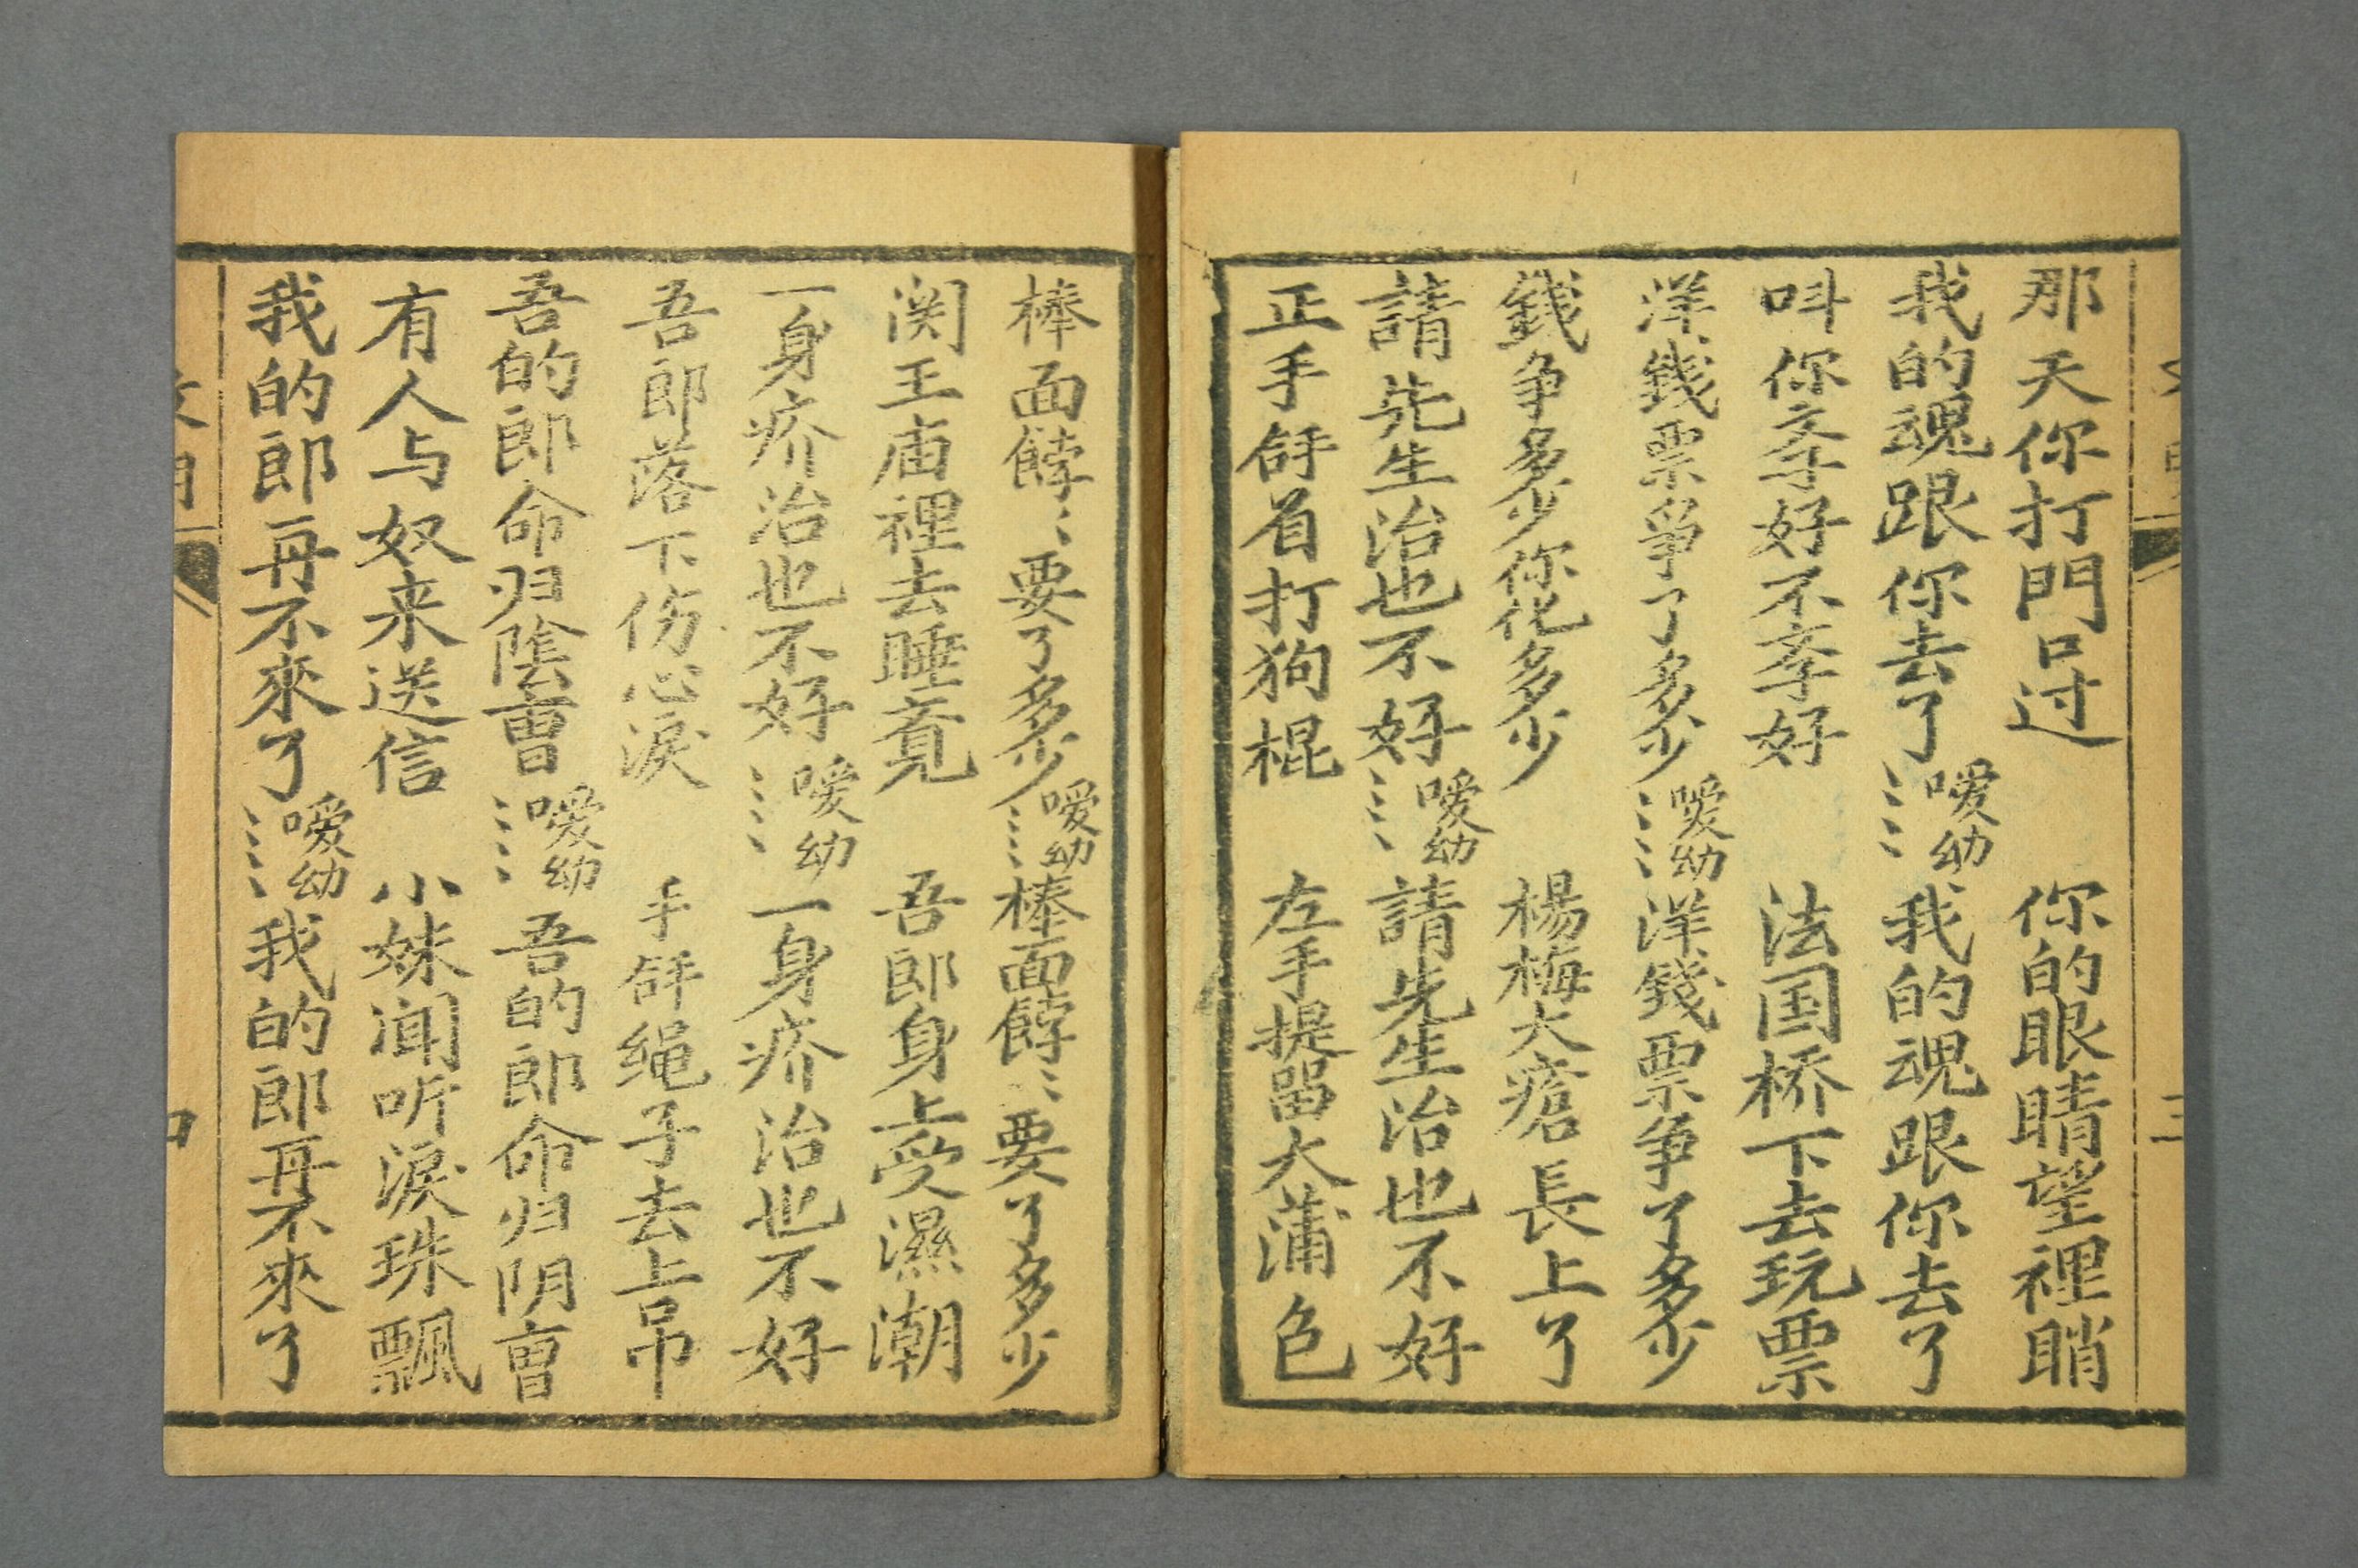 那天你打門口过　你的眼睛望裡睄
我的魂跟你去了噯幼ミミミ我的魂跟你去了
呌你斈好不斈好　法国桥下去玩票
洋錢票爭了多少噯幼ミミミ洋錢票争了多少
錢争多少你化多少　楊梅大瘡長上了
請先生治也不好噯幼ミミミ請先生治也不好
正手䍨着打狗棍　左手提畄大蒲色
棒面餑ミ要了多少噯幼ミミミ棒面餑ミ要了多少
関王庙裡去睡覔　吾郎身上受濕潮
一身疥治也不好噯幼ミミミ一身疥治也不好
吾郎落下伤心淚　手䍨绳子去上吊
吾的郎命归隂曺噯幼ミミミ吾的郎命归阴曺
有人与奴来送信　小妹闻听淚珠飄
我的郎再不來了噯幼ミミミ我的郎再不來了
三
四